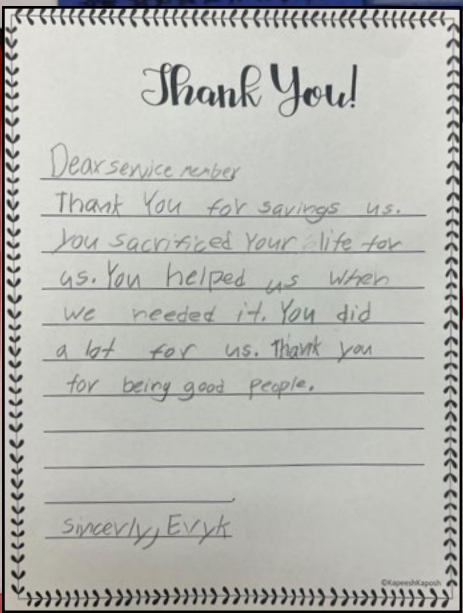 Thank You!
Dear service member
Thank You for savings us.
you sacrificed Your life for
us. You helped us when
we needed it. You did
a lot for us. Thank you
for being good people.
sincerly, Evyk
©KapeeshKaposh